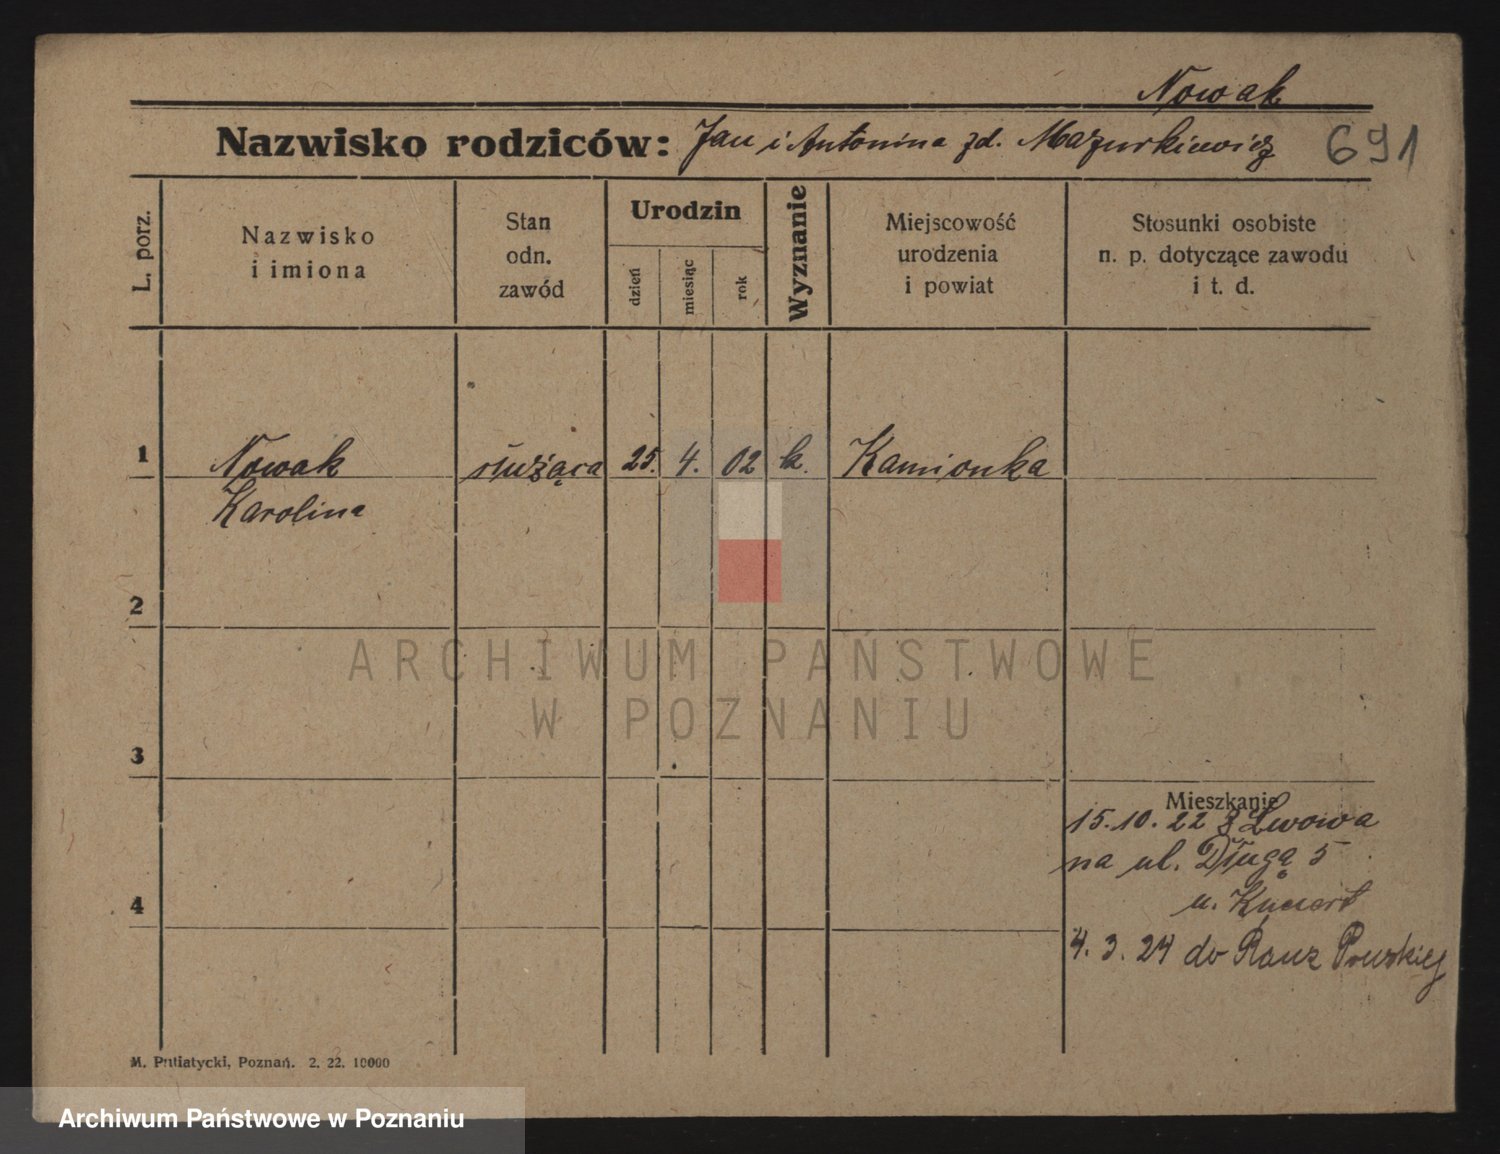 Nowak
Nazwisko rodziców: Jan i Antonina zd. Mazurkiewicz 691
L. porz.
Nazwisko
i imiona
Stan
odn.
zawód
Urodzin
dzień
miesiąc
rok
Wyznanie
Miejscowość
urodzenia
i powiat
Stosunki osobiste
n. p. dotyczące zawodu
i t. d.
1 Nowak służąca 25. 4. 02 k. Kamionka
Karolina
2
3
Mieszkanie
15.10.22 z Lwowa
na ul. Długą 5
4
u.
4. 3. 24 do Pruskiej
M. Putiatycki, Poznań. 2. 22. 10000
ARCHIWUM PAŃSTWOWE
W POZNANIU
Archiwum Państwowe w Poznaniu